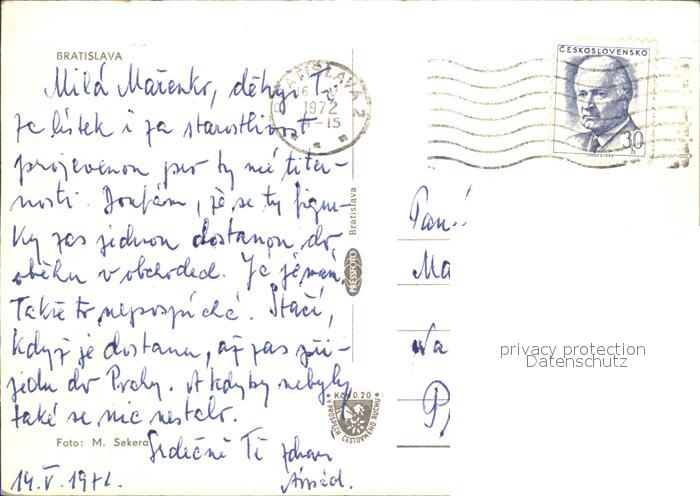 BRATISLAVA
Milá Mařenko, děkuji Ti
za lístek i za starostlivost
projevenou pro ty mé titer-
nosti. Doufám, že se ty figur-
ky zas jednou dostanou do
oběhu v obchodech. Já je mám.
Takže to nepospíchá. Stačí,
když je dostanu, až zas při-
jedu do Prahy. A kdyby nebyly,
také se nic nestalo.
Srdečně Tě zdraví
Foto: M. Sekera
14. V. 1972.
BRATISLAVA 2
1972
-15
PRESSFOTO Bratislava
Kčs 0.20
V PROSPĚCH CESTOVNÉHO RUCHU
ČESKOSLOVENSKO
30 h
Paní
Ma
Na
P
privacy protection
Datenschutz